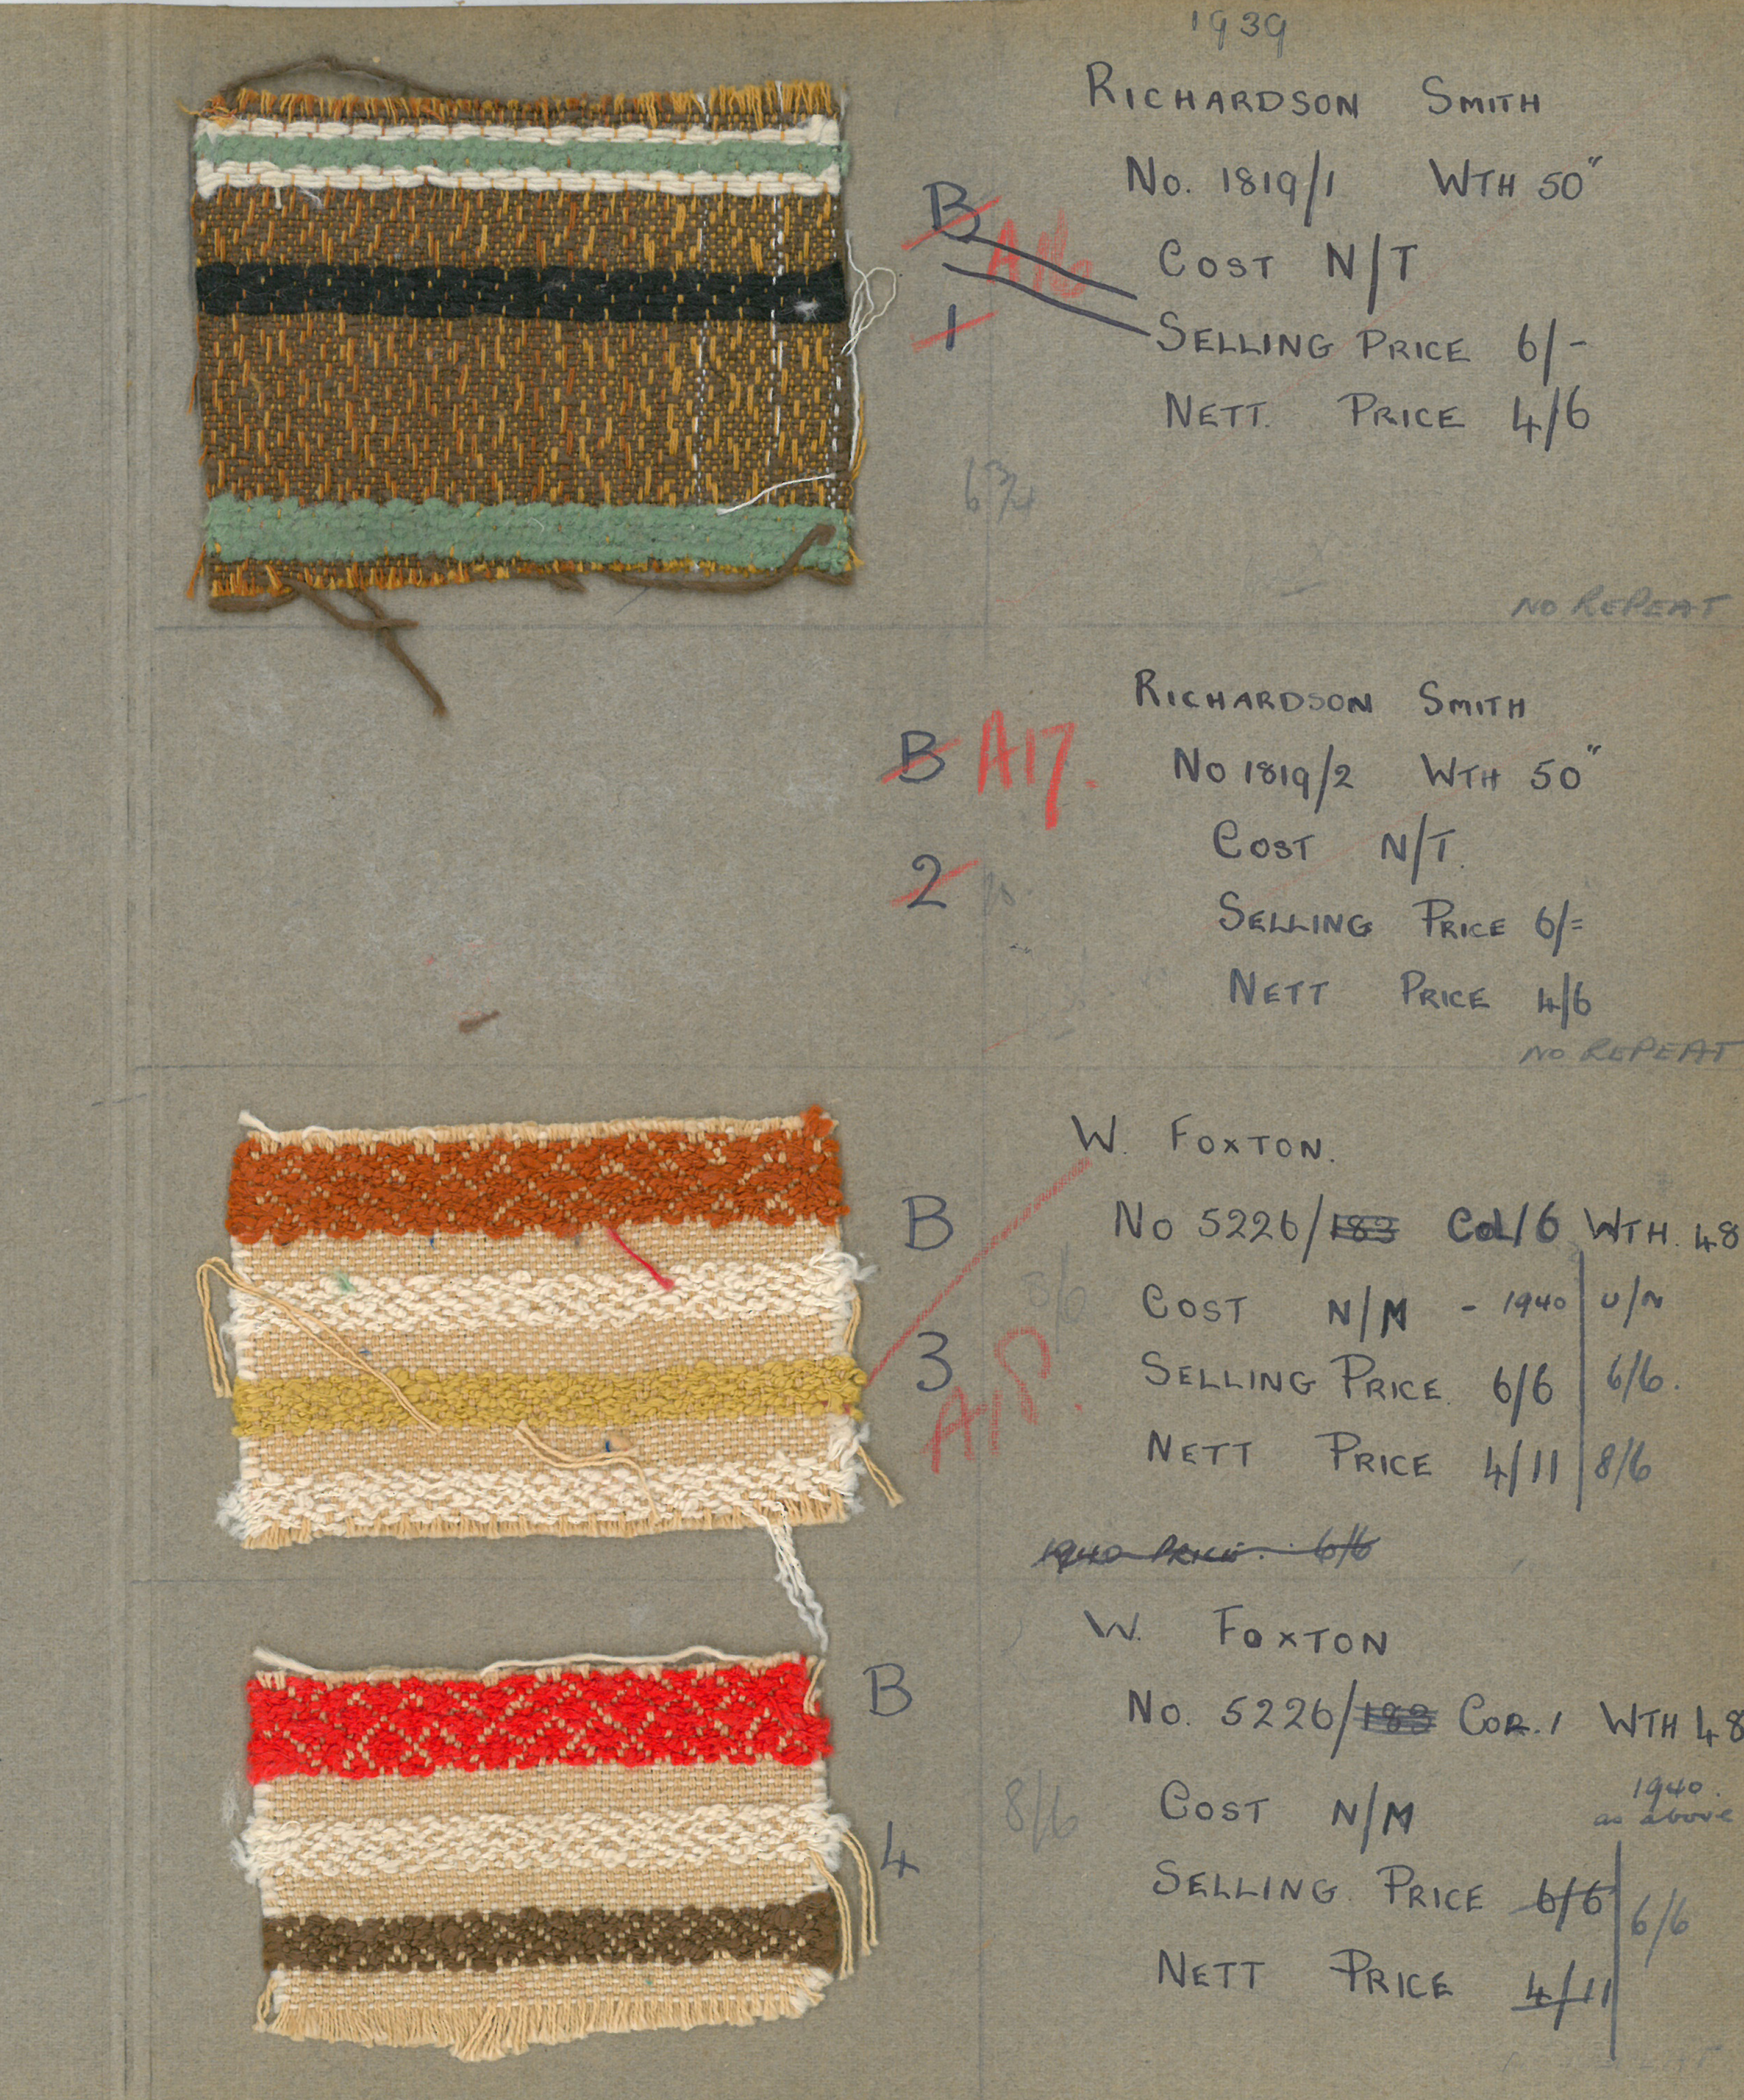 1939
RICHARDSON SMITH
No. 1819/1 WTH 50"
B A16
COST N/T
1
SELLING PRICE 6/-
NETT. PRICE 4/6
6¾
NO REPEAT
RICHARDSON SMITH
B A17.
No 1819/2 WTH 50"
COST N/T.
2
SELLING PRICE 6/=
NETT PRICE 4/6
NO REPEAT
W. FOXTON.
B
No 5226/183 Col/6 WTH. 48
COST N/M - 1940 U/N
3
A18.
SELLING PRICE 6/6 6/6.
NETT PRICE 4/11 8/6
1940 PRICE. 6/6
W. FOXTON
B
No. 5226/183 COR. 1 WTH 48
8/6
COST N/M
1940.
as above
4
SELLING. PRICE 6/6 6/6
NETT PRICE 4/11